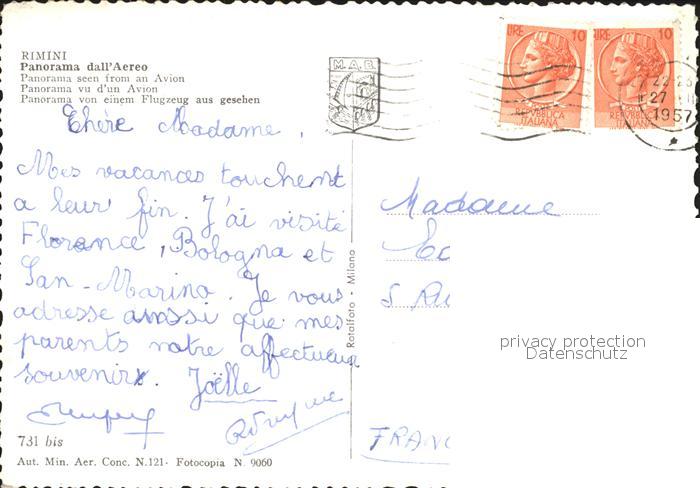 RIMINI
Panorama dall'Aereo
Panorama seen from an Avion
Panorama vu d'un Avion
Panorama von einem Flugzeug aus gesehen
M.A.B.
LIRE 10
REPVBBLICA
ITALIANA
LIRE 10
REPVBBLICA
ITALIANA
27
1957
Chère Madame,
Mes vacances touchent
a leur fin. J'ai visité
Florence, Bologna et
San-Marino. Je vous
adresse ainssi que mes
parents notre affectueux
souvenir. Joëlle
731 bis
Aut. Min. Aer. Conc. N.121- Fotocopia N. 9060
Rotalfoto - Milano
Madame
FRANC
privacy protection
Datenschutz